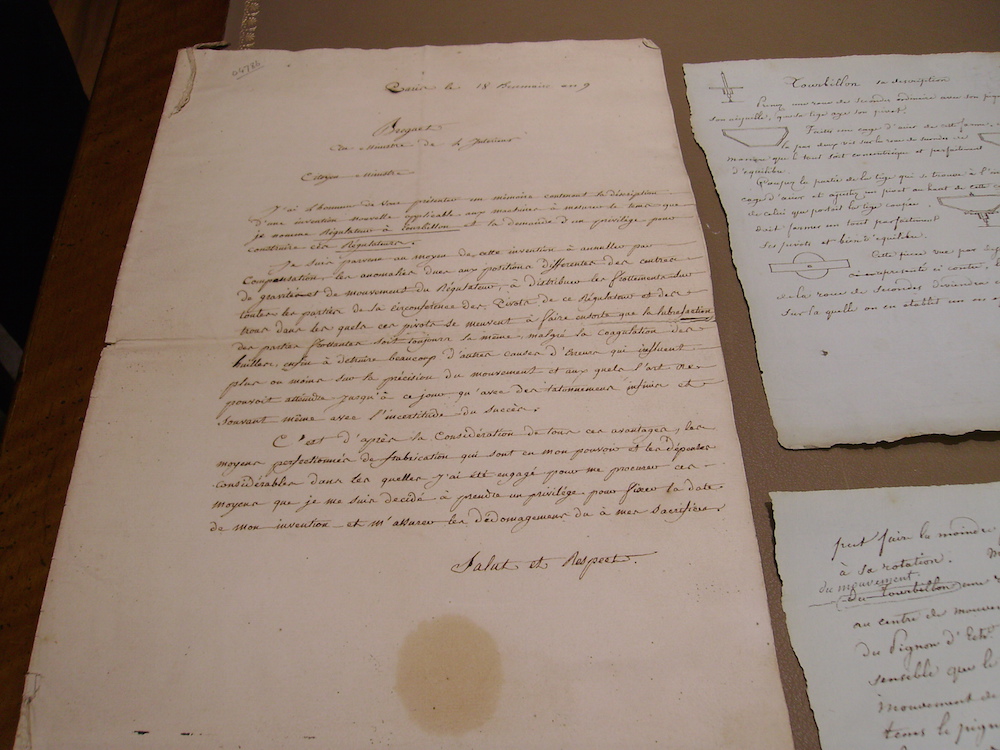 Paris le 18 Brumaire an 9
Breguet
au Ministre de l'Interieur
Citoyen Ministre
J'ai l'honneur de vous présenter un mémoire contenant la description
d'une invention nouvelle applicable aux machines à mesurer le tems que
je nomme Régulateur à Tourbillon et la demande d'un privilége pour
construire ces Régulateurs.
Je suis parvenu au moyen de cette invention à annuller par
Compensation, les anomalies dues aux positions differentes des centres
de gravité et de mouvement du Régulateur, à distribuer les frottements sur
toutes les parties de la circonférence des Pivots de ce Régulateur et des
trous dans les quels ces pivots se meuvent à faire ensorte que la lubrefaction
des parties frottantes soit toujours la même, malgré la coagulation des
huilles, enfin à détruire beaucoup d'autres causes d'Erreurs qui influent
plus ou moins sur la précision du mouvement et aux quels l'art ne
pouvoit atteindre jusqu'à ce jour qu'avec des tatonnemens infinis et
souvant même avec l'incertitude du succès.
C'est d'après la Considération de tous ces avantages, les
moyens perfectionnés de fabrication qui sont en mon pouvoir et les dépenses
considérables dans les quelles j'ai été engagé pour me procurer ces
moyens que je me suis decidé à prendre un privilége pour fixer la date
de mon invention et m'assurer les dédomagemens du à mes sacrifices.
Salut et Respect.
Tourbillon sa description
Prenez une roue de secondes ordinaire avec son
son éguille, que la tige aye son pivot.
Faites une cage d'acier de cette forme,
la par deux vis sur la roue de secondes de
maniere que le tout soit concentrique et parfaitement
d'équilibre.
Coupez la partie de la tige qui se trouve à
cage d'acier et ajustez un pivot au haut de cette
de celui que portoit la tige coupée.
doit former un tout parfaitement
ses pivots et bien d'équilibre.
Cette piece vue par
représenté ci contre,
la roue de secondes deviendra
sur la quelle on en établit un
peut faire la moindre
à sa rotation.
du mouvement
du Tourbillon une
au centre de
du Pignon d'
sensible que le
mouvement de
tems le